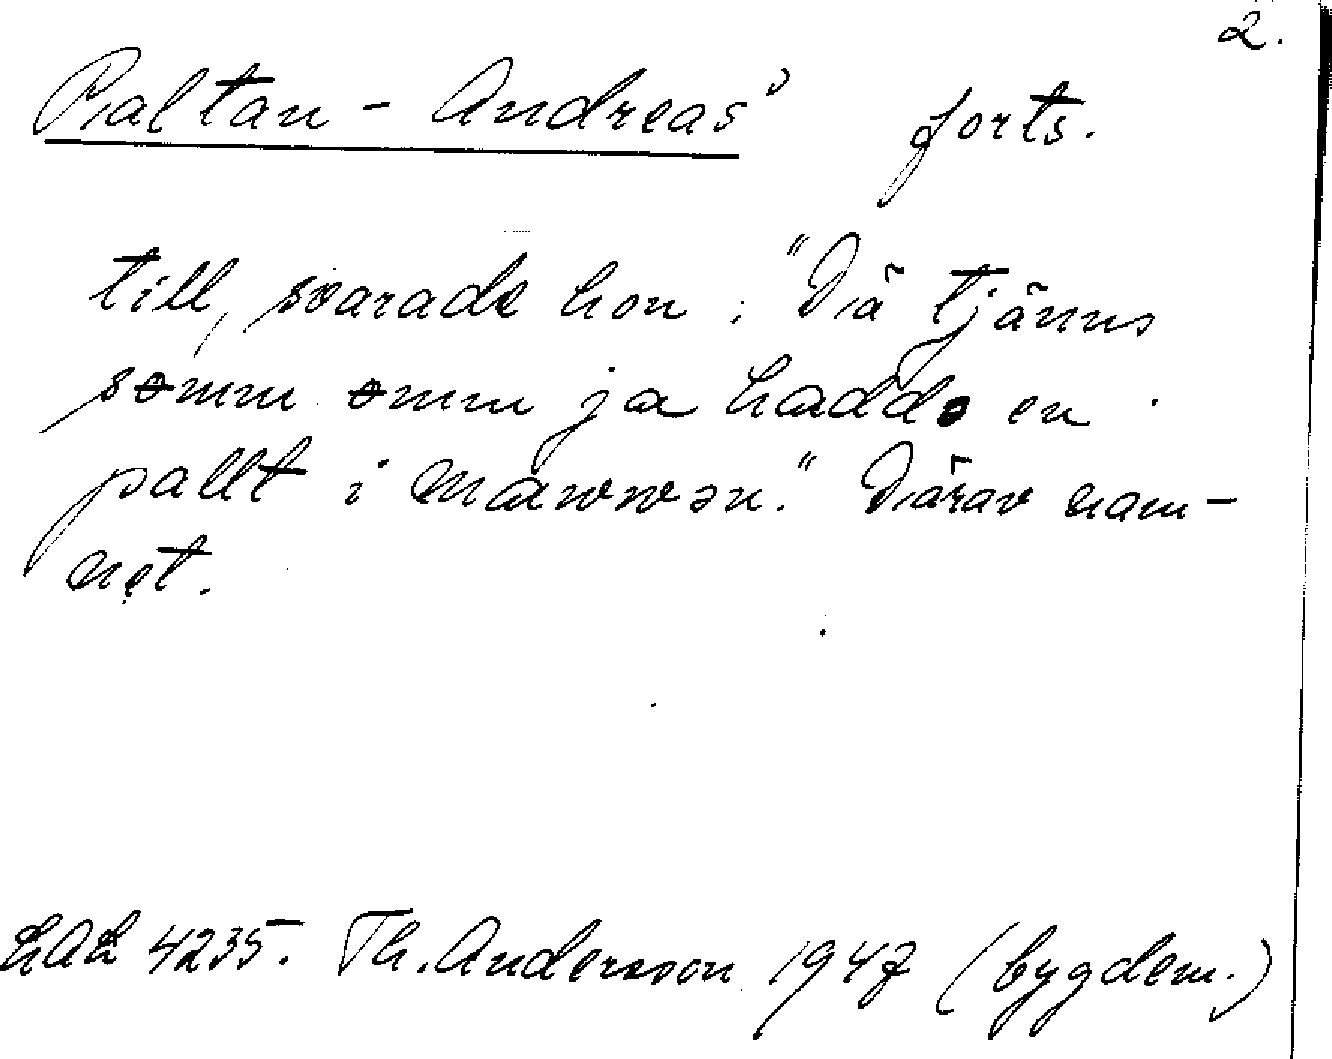 2.
Paltan-Andreas' forts.
till, svarade hon: "Dä tjänns
somm omm ja hadde en
pallt i mawwən." Därav nam-
net.
LAL 4235. Th. Andersson 1947 (bygdem.)